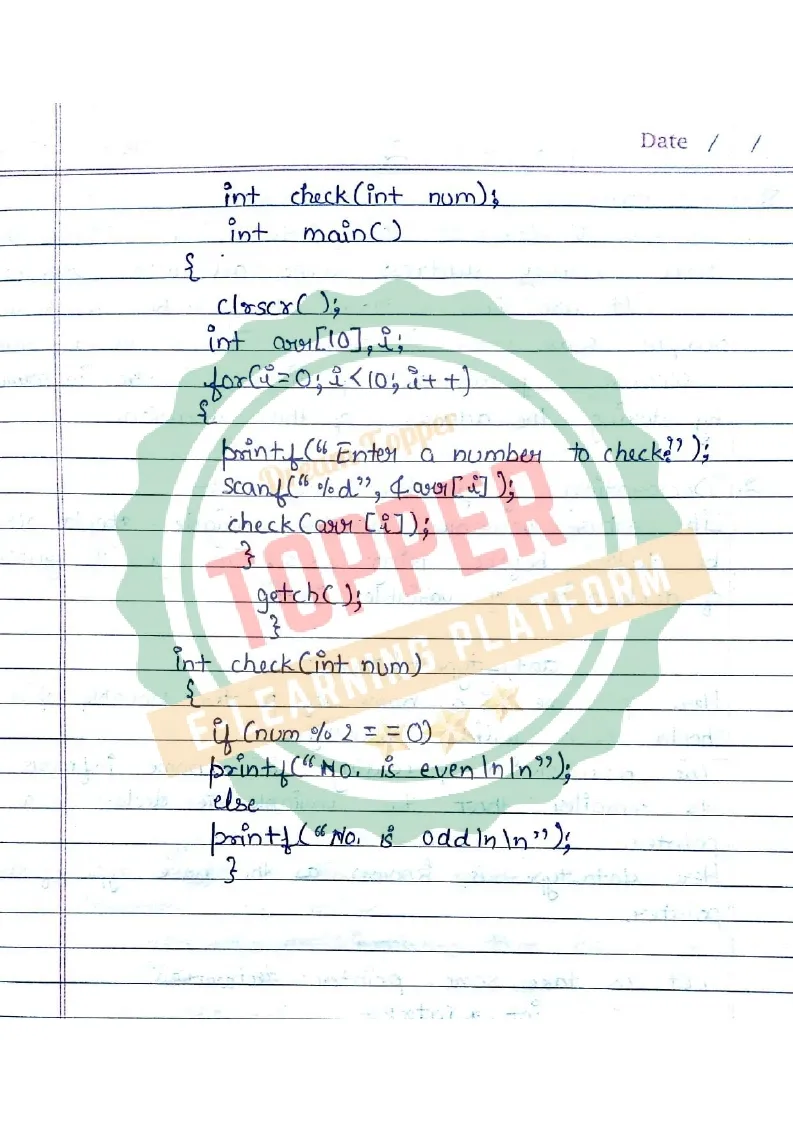 Date / /
int check(int num);
int main()
{
clrscr();
int arr[10],i;
for(i=0; i<10; i++)
{
printf("Enter a number to check:");
scanf("%d", &arr[i]);
check(arr[i]);
}
getch();
}
int check(int num)
{
if (num % 2 == 0)
printf("No. is even\n\n");
else
printf("No. is odd\n\n");
}
Dream Topper
TOPPER
E-LEARNING PLATFORM